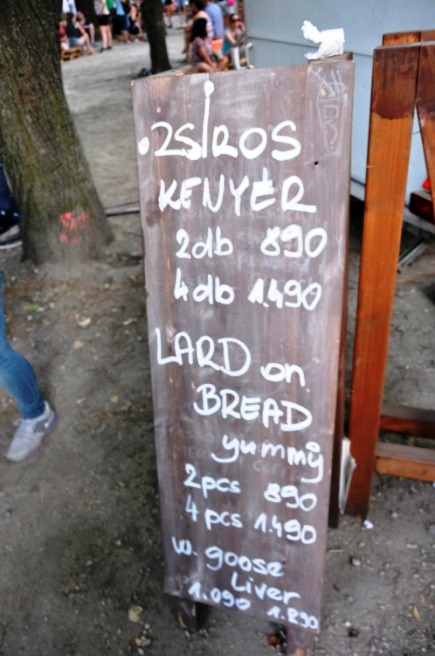 .ZSÍROS
KENYÉR
2db 890
4db 1.490
LARD on
BREAD
yummy
2pcs 890
4 pcs 1.490
w. goose
Liver
1.090 1.890